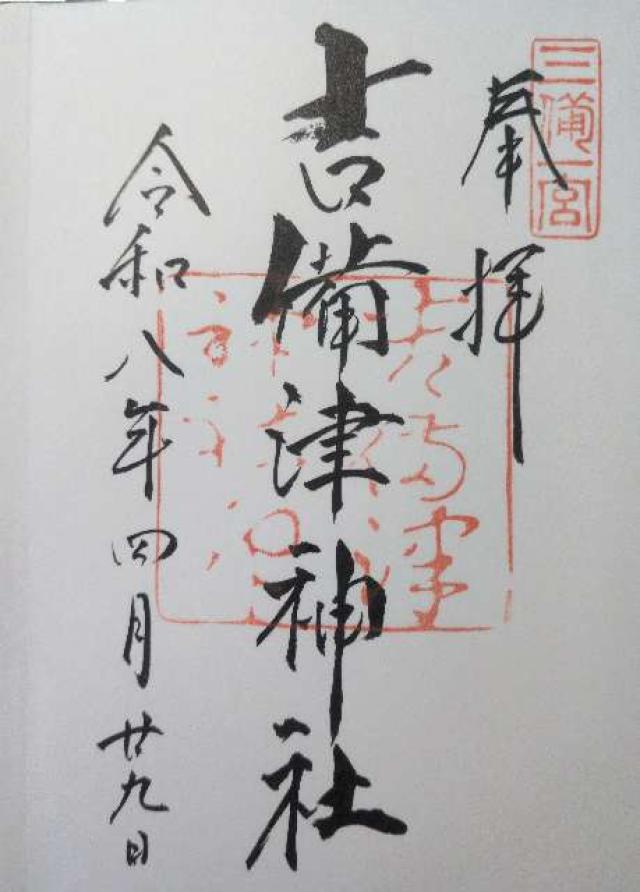 三備一宮
奉拝
吉備津神社
令和八年四月廿九日